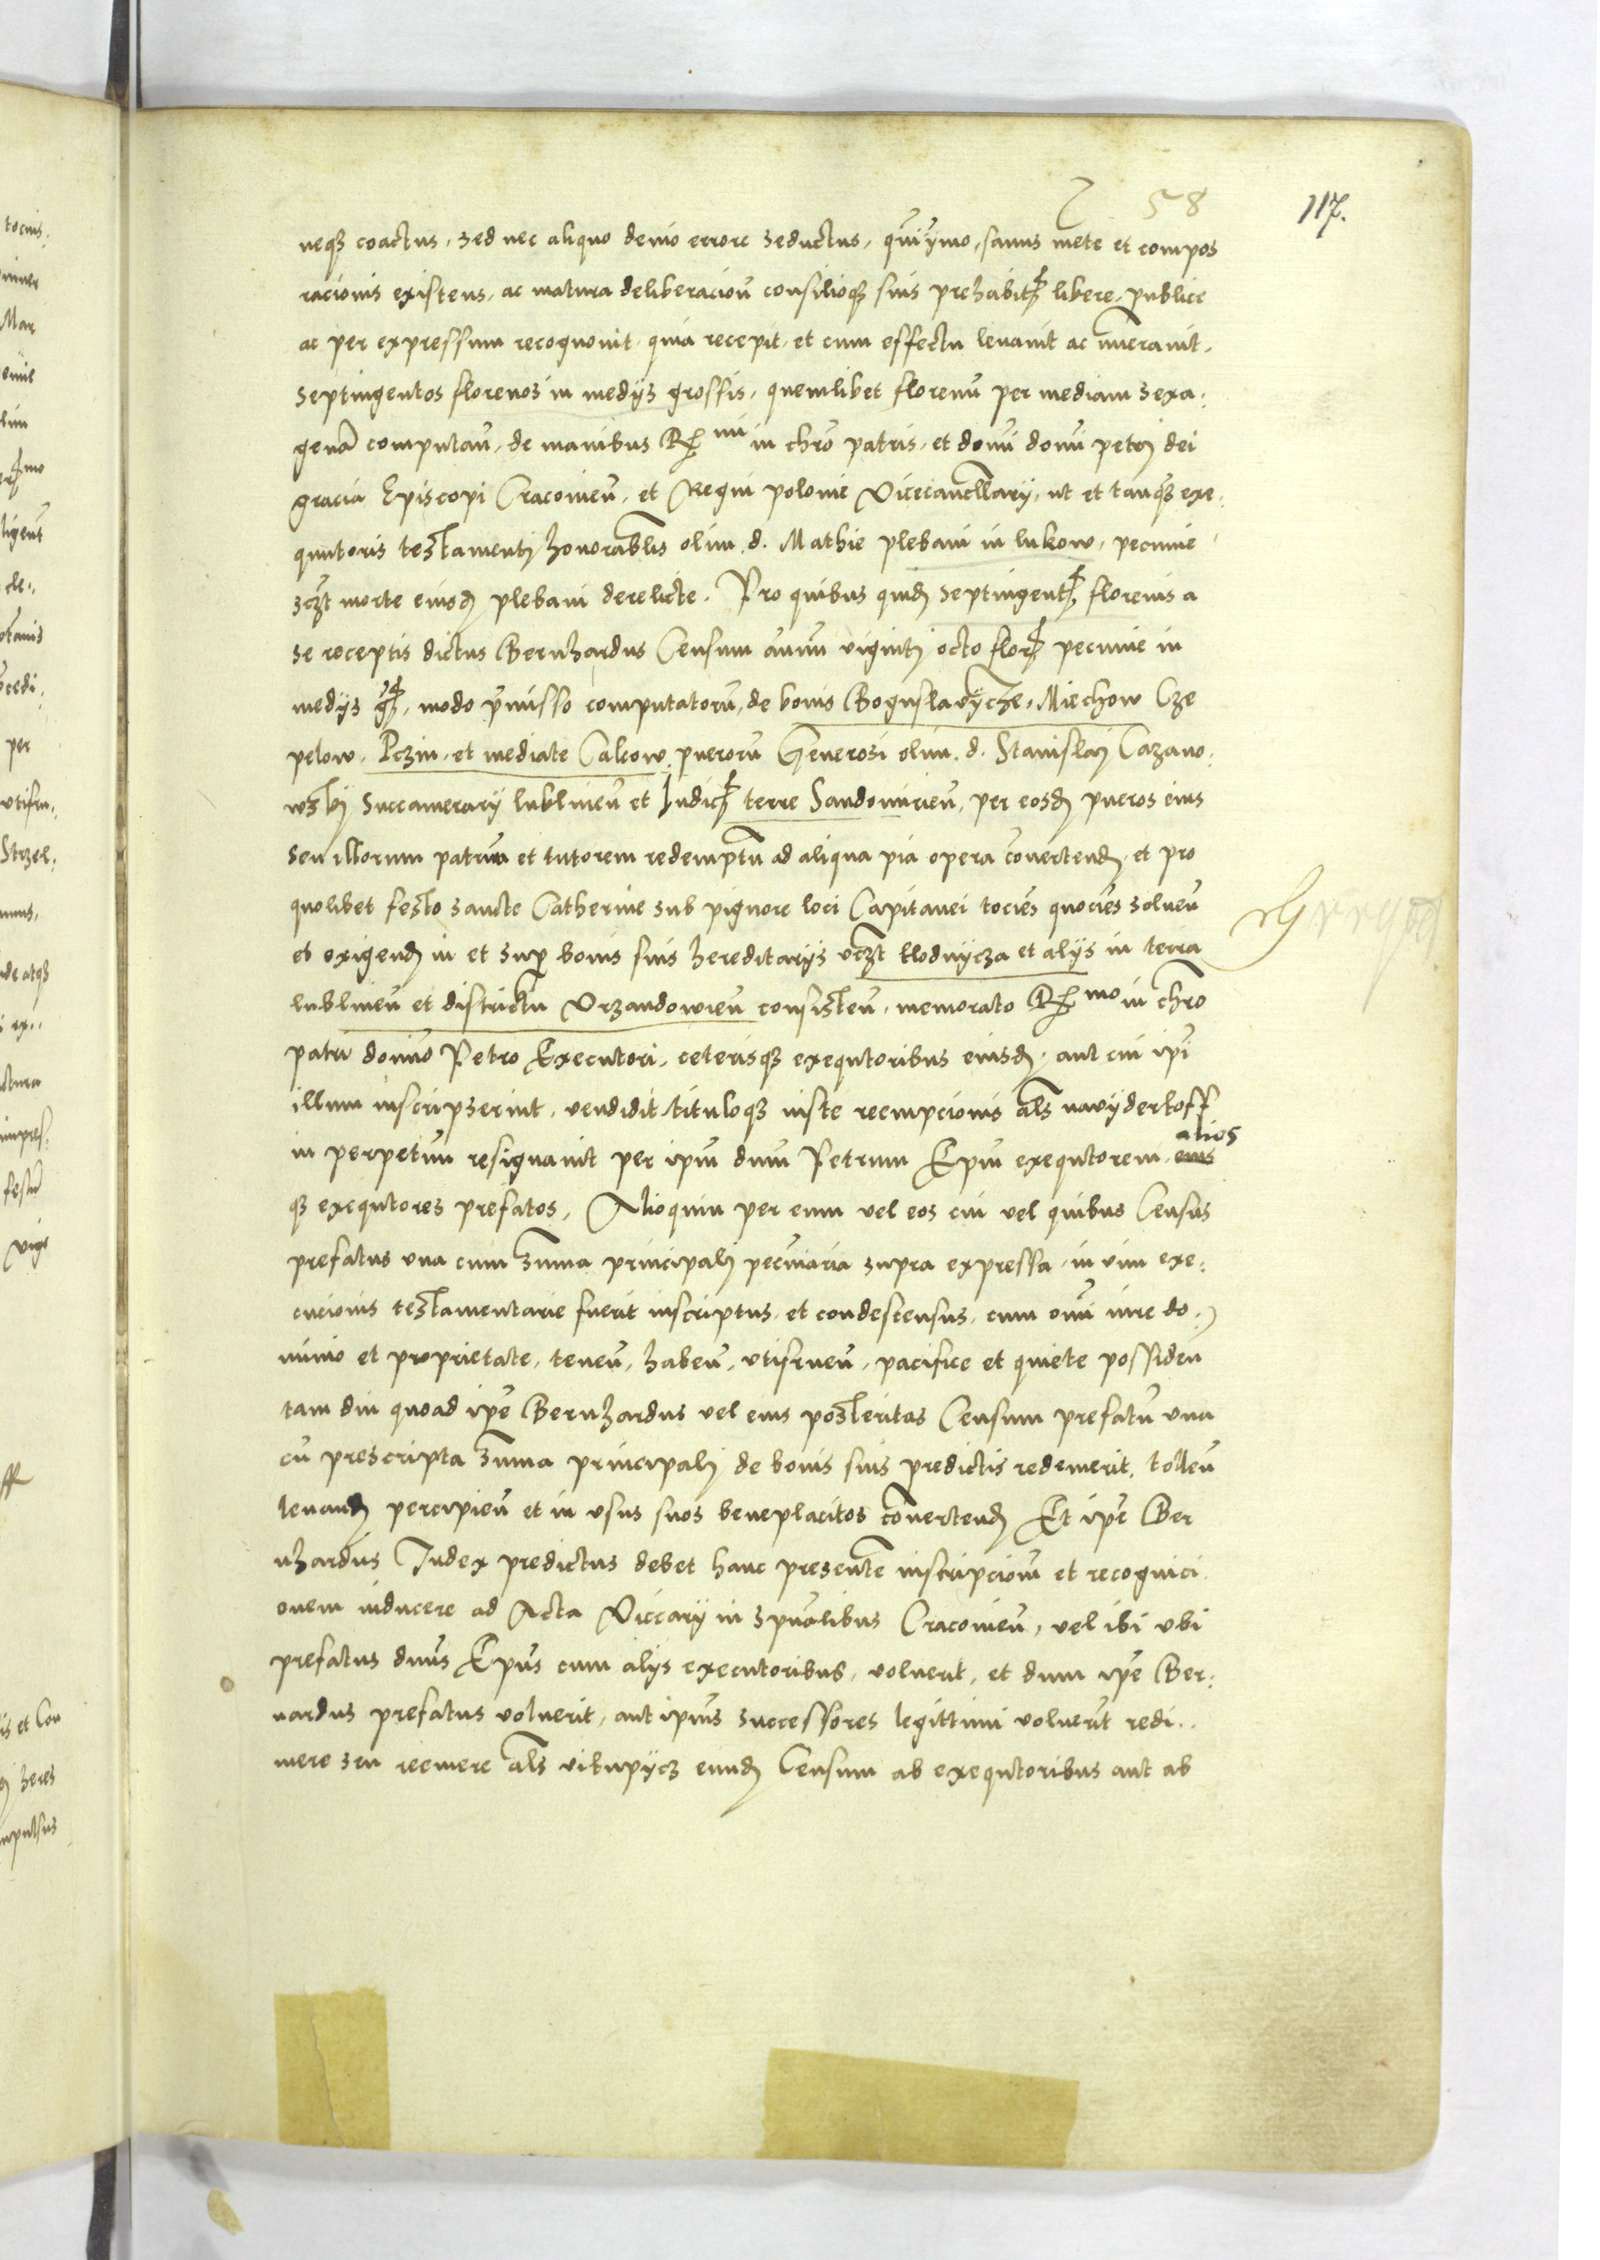 58
117.
neqz coactus, sed nec aliquo devio errore seductus, quiymo, sanus mete et compos
racionis existens, ac matura deliberacion consilioqz suis prehabitz libere, publice
ac per expressum recognovit, quia recepit, et cum effectu levavit ac nueravit,
septingentos florenos in medys grossis, quemlibet florenu per mediam sexa:
gena computan, de manibus R mi in chro patris, et domi domi petri dei
gracia Episcopi Cracovien, et Regni polonie Vicecancellary, ut et tanqz exe:
qutoris testamenti honorablis olim d. Mathie plebani in lukow, pecunie
sczt morte eiusd plebani derelicte. Pro quibus quid septingentz florenis a
se receptis dictus Bernhardus Censum annu viginti octo florz pecunie in
medys gz, modo pmisso computatoru, de bonis Boguslavyche, Miechow Cze
pelow, Pczin, et mediate Calcow, pueroru Generosi olim d. Stanislai Cazano:
wski Succamerary lublinen et Iudicz terre Sandomirien, per eosd pueros eius
seu illorum patruu et tutorem redemptu ad aliqua pia opera convertend, et pro
quolibet festo sancte Catherine sub pignore loci Capitanei tocies quocies solven
et exigend in et sup bonis suis hereditarys vczt klodnycza et alys in terra
lublinen et districtu Vrzandowien consisten, memorato R mo in chro
patri domio Petro Executori, ceterisqz exequtoribus eiusd, aut cui ipi
illum inscripserint, vendidit tituloqz iuste reempcionis als nawyderkoff
in perpetuu resignavit per ipm dnm Petrum Epm exequtorem, eius alios
qz exequtores prefatos, Alioquin per eum vel eos cui vel quibus Census
prefatus una cum suma principali pecuniaria supra expressa, in vim exe:
cucionis testamentarie fuerit inscriptus, et condescensus, cum omi iure do:
minio et proprietate, tenen, haben, utifruen, pacifice et quiete possiden
tam diu quoad ipe Bernhardus vel eius posteritas Censum prefatu una
cu prescripta suma principali de bonis suis predictis redemerit, tollen
levand percipien et in usus suos beneplacitos convertend Et ipe Ber
nhardus Iudex predictus debet hanc presente inscripcionm et recognici
onem inducere ad Acta Vicary in spualibus Cracovien, vel ibi ubi
prefatus dnus Epus cum alys executoribus, voluerit, et dum ipe Ber:
nardus prefatus voluerit, aut ipius successores legittimi voluerit redi..
mere seu reemere als vikupycz eund Censum ab exequtoribus aut ab